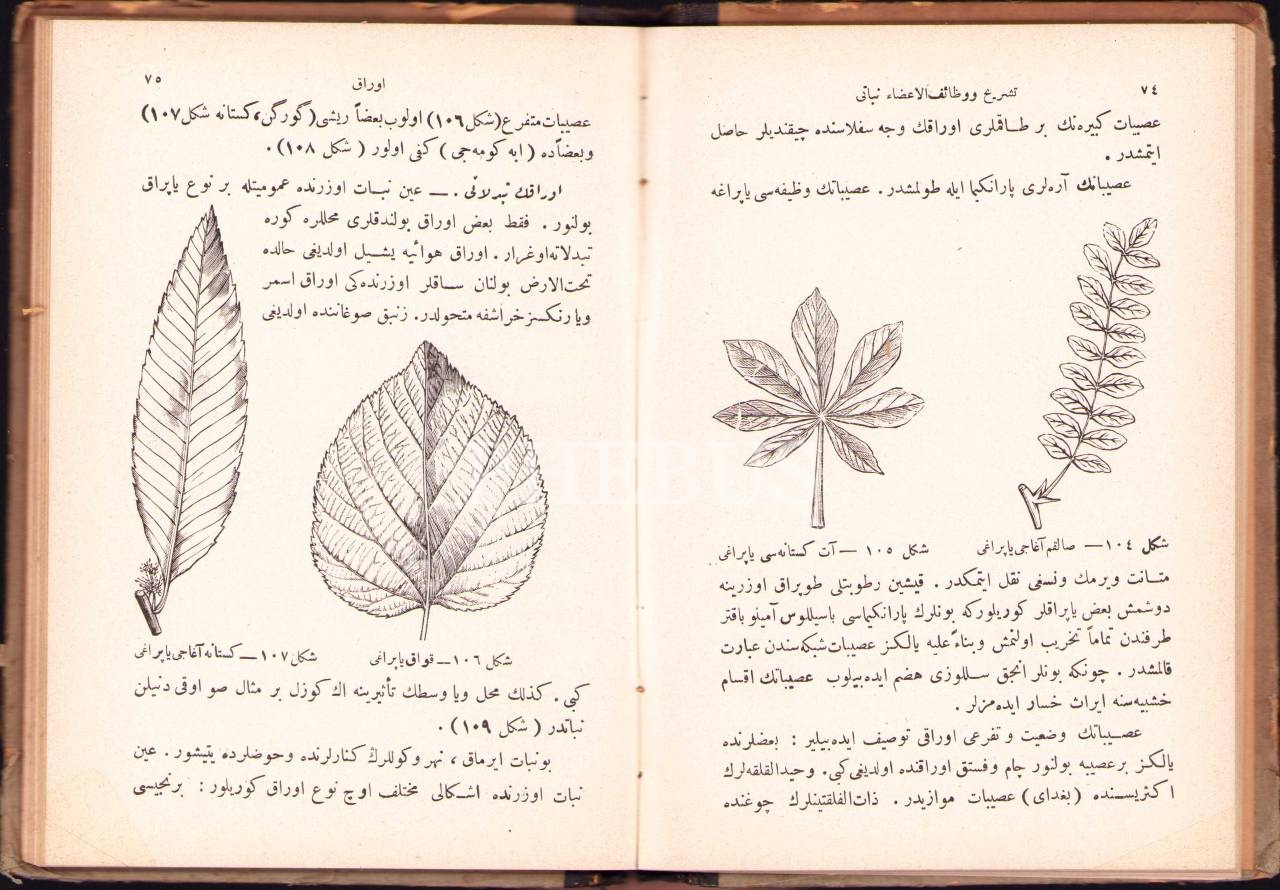 ٧٤
تشریح ووظائف‌الاعضاء نباتی
عصیبات كبیره‌نك بر طـاقملری اوراقك وجه سفلاسنده چیقندیلر حاصل
ایتمشدر .
عصیباتك آره‌لری پارانكیما ایله طولمشدر . عصیباتك وظیفه‌سی یاپراغه
شكل ١٠٤ — صالقم آغاجی یاپراغی
شكل ١٠٥ — آت كستانه‌سی یاپراغی
متـانت ویرمك ونسغی نقل ایتمكدر . قیشین رطوبتلی طوپراق اوزرینه
دوشمش بعض یاپراقلر كوریلوركه بونلرك پارانكیماسی باسیللوس آمیلو باقتر
طرفندن تماماً تخریب اولنمش وبناءً علیه یالكز عصیبات شبكه‌سندن عبارت
قالمشدر . چونكه بونلر انجق سـللوزی هضم ایده‌بیلوب عصیباتك اقسام
خشبیه‌سنه ایراث خسار ایده‌مزلر .
عصـیباتك وضعیت و تفرعی اوراقی توصیف ایده‌بیلیر : بعضلرنده
یالكز برعصیبه بولنور چام وفستق اوراقنده اولدیغی كبی. وحیدالفلقه‌لرك
اكثریسـنده (بغدای) عصیبات موازیدر . ذات‌الفلقتینلرك چوغنده
٧٥
اوراق
عصیبات متفرع (شكل ١٠٦) اولوب بعضاً ریشی (گورگن، كستانه شكل ١٠٧)
وبعضاًده (ابه كومه‌جی) كفی اولور (شكل ١٠٨) .
اوراقك تبدلاتی . — عین نبـات اوزرنده عمومیتله بر نوع یاپراق
بولنور . فقط بعض اوراق بولندقلری محللره كوره
تبدلاته‌اوغرار . اوراق هوائیه یشـیل اولدیغی حالده
تحت‌الارض بولنان سـاقلر اوزرنده‌كی اوراق اسمر
ویا رنكسز خراشفه متحولدر. زنبق صوغاننده اولدیغی
شكل ١٠٦ — قواق یاپراغی
شكل ١٠٧ — كستانه آغاجی یاپراغی
كبی . كذلك محل ویا وسطك تأثیرینه اك كوزل بر مثال صو اوقی دنیلن
نباتدر ( شكل ١٠٩) .
بونبات ایرماق ، نهر وكوللرڭ كنارلرنده وحوضلرده یتیشور . عین
نبات اوزرنده اشـكالی مختلف اوچ نوع اوراق كوریلور : برنجیسی
PHEBUS